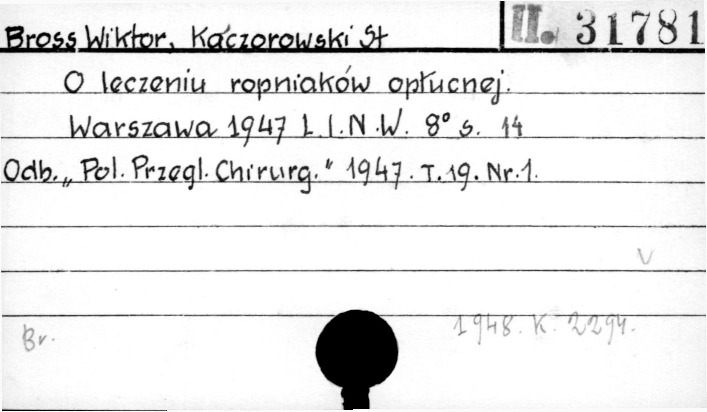 II. 31781
Bross Wiktor, Kaczorowski St
O leczeniu ropniaków opłucnej.
Warszawa 1947 L.I.N.W. 8° s. 14
Odb. „Pol. Przegl. Chirurg." 1947. T.19. Nr.1.
V
1948. K. 2294.
Br.